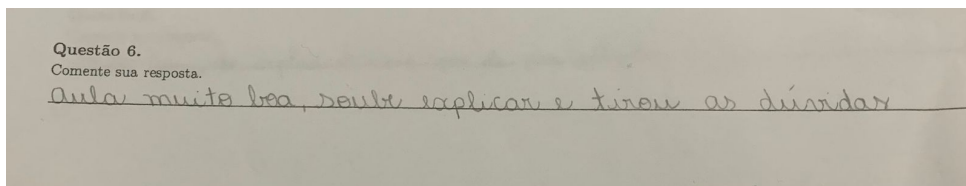 Questão 6.
Comente sua resposta.
Aula muito boa, soube explicar e tirou as dúvidas